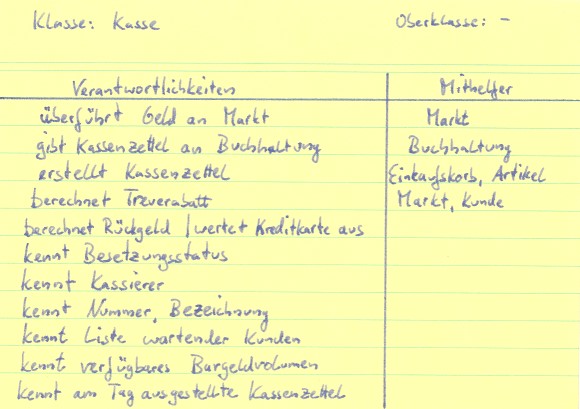 Klasse: Kasse Oberklasse: -
Verantwortlichkeiten Mithelfer
überführt Geld an Markt Markt
gibt Kassenzettel an Buchhaltung Buchhaltung
erstellt Kassenzettel Einkaufskorb, Artikel
berechnet Treuerabatt Markt, Kunde
berechnet Rückgeld / wertet Kreditkarte aus
kennt Besetzungsstatus
kennt Kassierer
kennt Nummer, Bezeichnung
kennt Liste wartender Kunden
kennt verfügbares Bargeldvolumen
kennt am Tag ausgestellte Kassenzettel